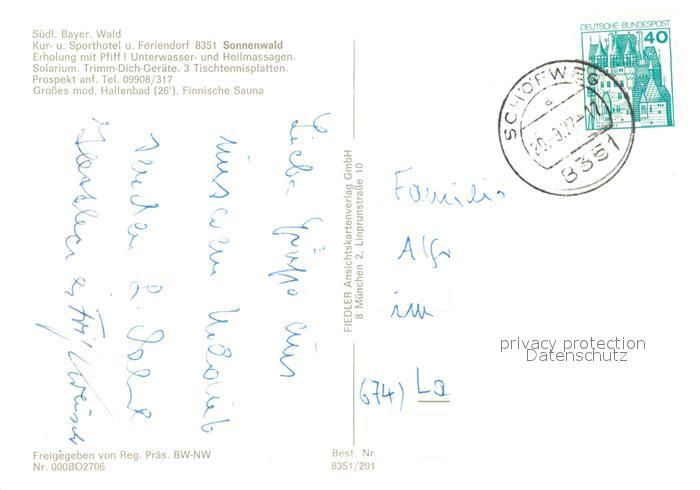 Südl. Bayer. Wald
Kur- u. Sporthotel u. Feriendorf 8351 Sonnenwald
Erholung mit Pfiff! Unterwasser- und Heilmassagen.
Solarium. Trimm-Dich-Geräte. 3 Tischtennisplatten.
Prospekt anf. Tel. 09908/317
Großes mod. Hallenbad (26°). Finnische Sauna
DEUTSCHE BUNDESPOST
40
SCHÖFWEG
8351
Liebe Grüße aus
unserem Urlaub
FIEDLER Ansichtskartenverlag GmbH
8 München 2, Linprunstraße 10
Familie
im
(674) La
privacy protection
Datenschutz
Freigegeben von Reg. Präs. BW-NW
Nr. 000BO2706
Best. Nr.
8351/201